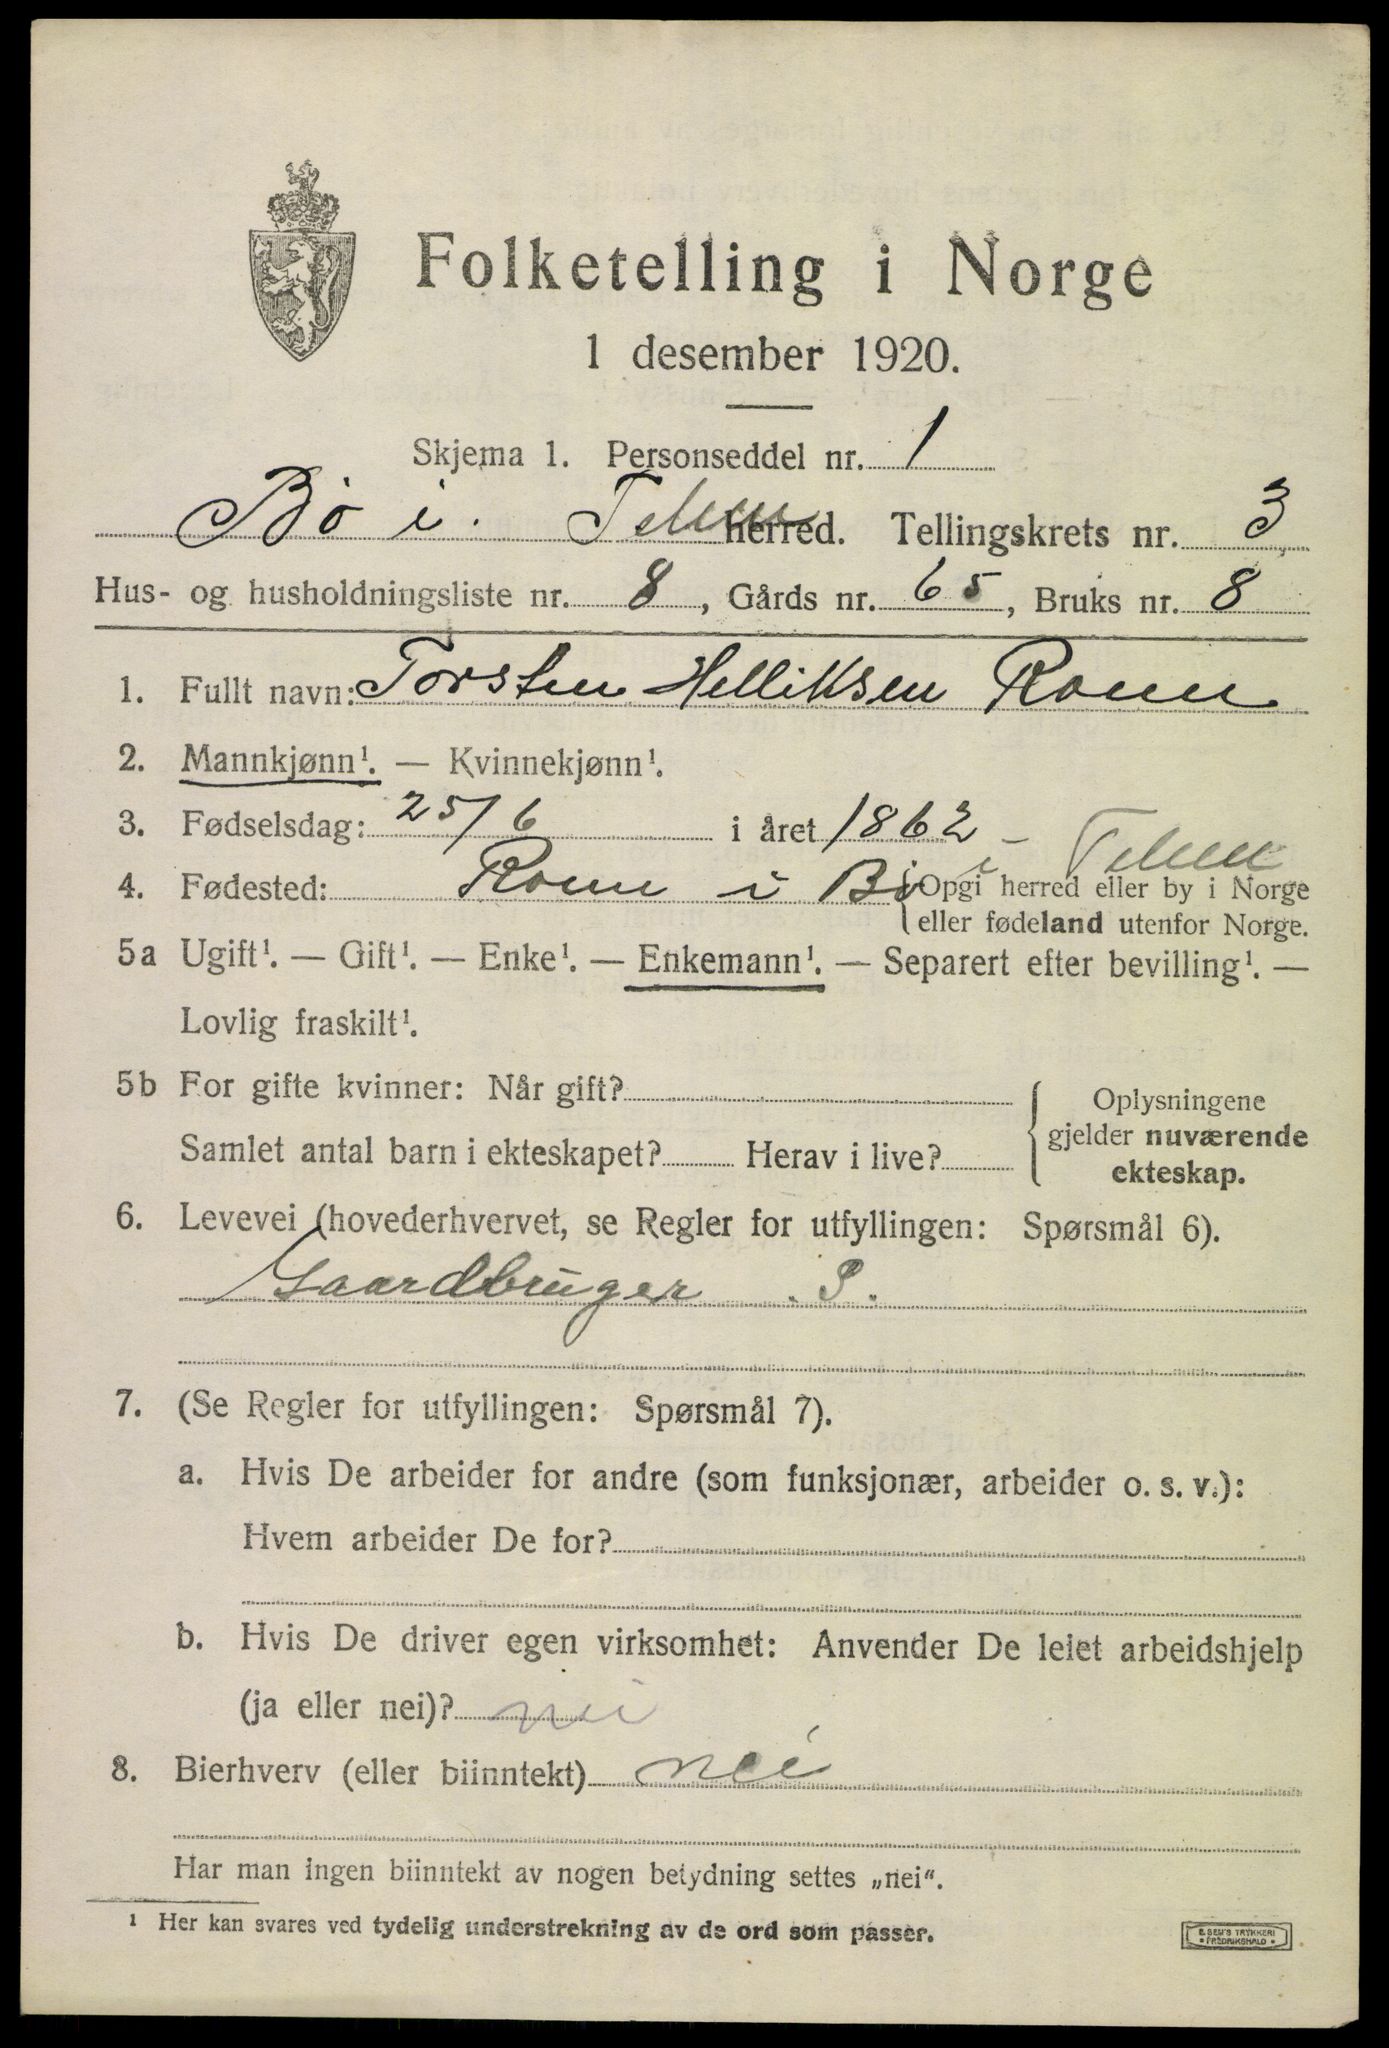 Folketelling i Norge
1 desember 1920.
Skjema 1. Personseddel nr. 1
Bø i Telem herred. Tellingskrets nr. 3
Hus- og husholdningsliste nr. 8, Gårds nr. 65, Bruks nr. 8
1. Fullt navn: Torsten Helliksen Roen
2. Mannkjønn¹. — Kvinnekjønn¹.
3. Fødselsdag: 25/6 i året 1862
4. Fødested: Roen i Bø i Telem { Opgi herred eller by i Norge
eller fødeland utenfor Norge.
5a Ugift¹. — Gift¹. — Enke¹. — Enkemann¹. — Separert efter bevilling¹. —
Lovlig fraskilt¹.
5b For gifte kvinner: Når gift?
Samlet antal barn i ekteskapet? Herav i live?
{ Oplysningene
gjelder nuværende
ekteskap.
6. Levevei (hovederhvervet, se Regler for utfyllingen: Spørsmål 6).
Gaardbruger . S.
7. (Se Regler for utfyllingen: Spørsmål 7).
a. Hvis De arbeider for andre (som funksjonær, arbeider o. s. v.):
Hvem arbeider De for?
b. Hvis De driver egen virksomhet: Anvender De leiet arbeidshjelp
(ja eller nei)? nei
8. Bierhverv (eller biinntekt) nei
Har man ingen biinntekt av nogen betydning settes „nei“.
¹ Her kan svares ved tydelig understrekning av de ord som passer.
E. SEM'S TRYKKERI
• FREDRIKSHALD •